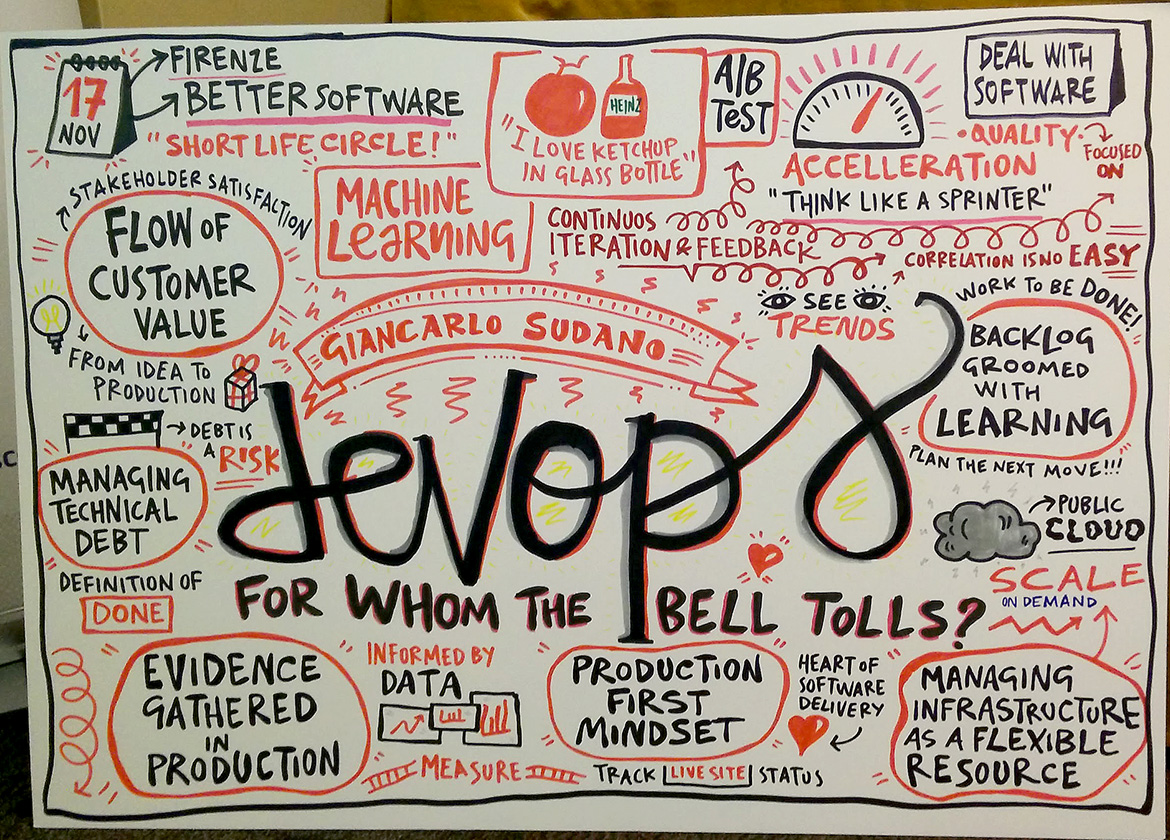 17
NOV
FIRENZE
BETTER SOFTWARE
"SHORT LIFE CIRCLE!"
HEINZ
"I LOVE KETCHUP
IN GLASS BOTTLE"
A/B
TEST
DEAL WITH
SOFTWARE
• QUALITY •
FOCUSED
ON
ACCELLERATION
"THINK LIKE A SPRINTER"
STAKEHOLDER SATISFACTION
FLOW OF
CUSTOMER
VALUE
MACHINE
LEARNING
CONTINUOS
ITERATION & FEEDBACK
CORRELATION IS NO EASY
SEE
TRENDS
FROM IDEA TO
PRODUCTION
GIANCARLO SUDANO
WORK TO BE DONE!
BACKLOG
GROOMED
WITH
LEARNING
PLAN THE NEXT MOVE!!!
DEBT IS
A RISK
MANAGING
TECHNICAL
DEBT
DEFINITION OF
DONE
devops
FOR WHOM THE BELL TOLLS?
PUBLIC
CLOUD
SCALE
ON DEMAND
EVIDENCE
GATHERED
IN
PRODUCTION
INFORMED BY
DATA
MEASURE
PRODUCTION
FIRST
MINDSET
TRACK LIVE SITE STATUS
HEART OF
SOFTWARE
DELIVERY
MANAGING
INFRASTRUCTURE
AS A FLEXIBLE
RESOURCE